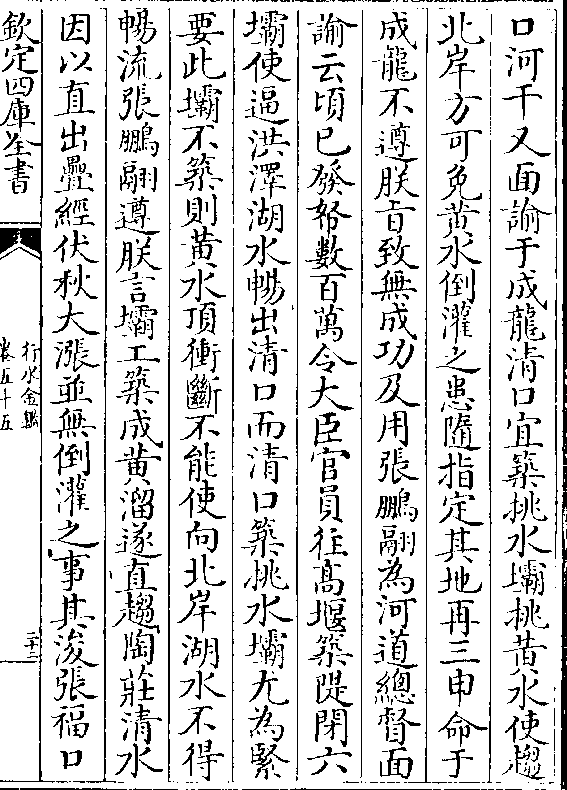 口河干又面諭于成龍清口宜築挑水壩挑黄水使趨
北岸方可免黄水倒灌之患隨指定其地再三申命于
成龍不遵朕㫖致無成功及用張鵬翮為河道總督面
諭云頃已發帑數百萬令大臣官員往髙堰築隄閉六
壩使逼洪澤湖水暢出清口而清口築挑水壩尤為緊
要此壩不築則黄水頂衝斷不能使向北岸湖水不得
暢流張鵬翮遵朕言壩工築成黄溜遂直趨陶莊清水
因以直出疊經伏秋大漲並無倒灌之事其浚張福口
欽定四庫全書
行水金鑑
卷五十五